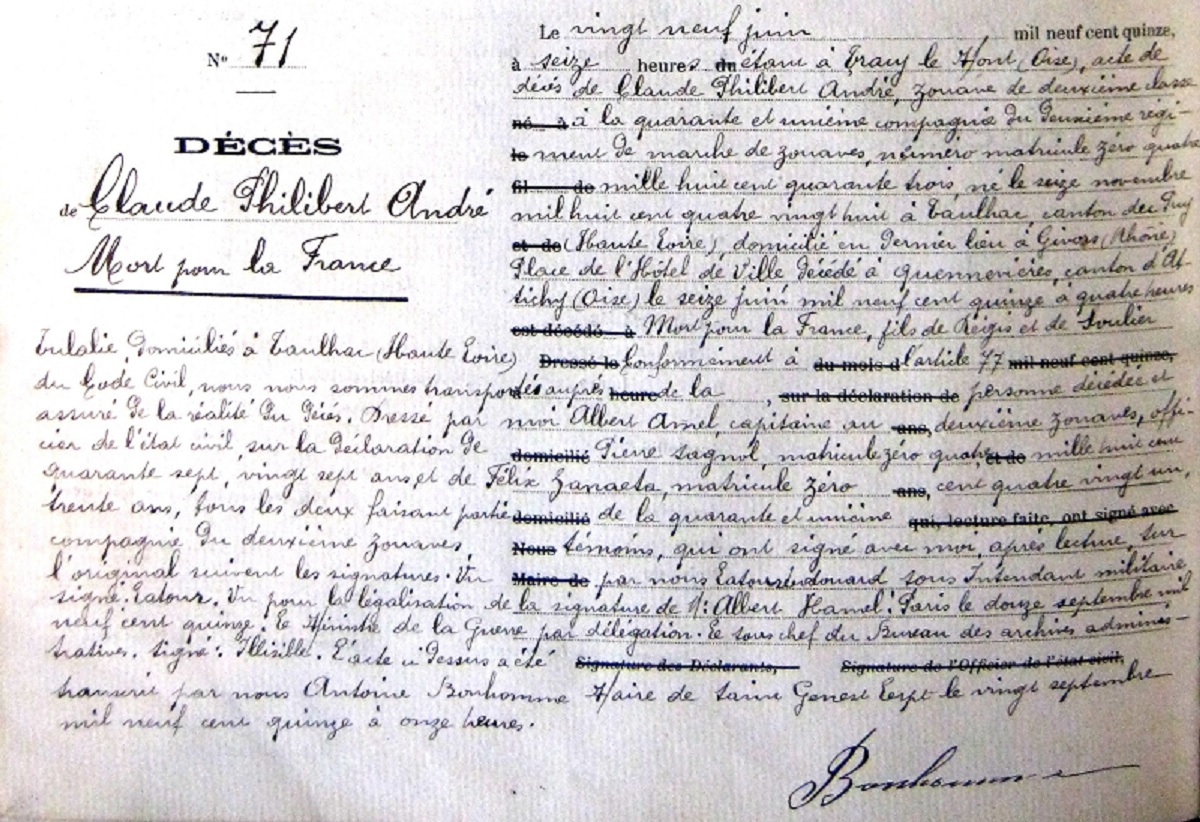 Nº 71
DÉCÈS
de Claude Philibert André
Mort pour la France
Le vingt neuf juin mil neuf cent quinze,
à seize heures du étant à Tracy le Mont (Oise), acte de
décés de Claude Philibert André, zouave de deuxième classe
né à à la quarante et unième compagnie du deuxième régi-
le ment de marche de zouaves, numéro matricule zéro quatre
fil de mille huit cent quarante trois, né le seize novembre
mil huit cent quatre vingt huit à Taulhac canton du Puy
et de (Haute Loire), domicilié en dernier lieu à Givors (Rhône)
Place de l'Hôtel de Ville décédé à Quennevières, canton d'At-
tichy (Oise) le seize juin mil neuf cent quinze à quatre heures
est décédé à Mort pour la France, fils de Régis et de Soulier
Eulalie, domiciliés à Taulhac (Haute Loire) Dressé le Conformément à du mois d l'article 77 mil neuf cent quinze,
du Code Civil, nous nous sommes transportés auprès heure de la , sur la déclaration de personne décédée et
assuré de la réalité du décés. Dressé par moi Albert Amel, capitaine au ans, deuxième zouaves, offi-
cier de l'état civil sur la déclaration de domicilié Pierre Sagnol, matricule zéro quatre et de mille huit cent
quarante sept, vingt sept ans et de Félix Zanaeta, matricule zéro ans, cent quatre vingt un,
trente ans, tous les deux faisant partie domicilié de la quarante et unième qui, lecture faite, ont signé avec
compagnie du deuxième zouaves, Nous témoins, qui ont signé avec moi, après lecture, sur
l'original suivent les signatures. Vu Maire de par nous Latour Edouard sous Intendant militaire
signé: Latour. Vu pour la légalisation de la signature de Mr Albert Hamel. Paris le douze septembre mil
neuf cent quinze. Le Ministre de la Guerre par délégation. Le sous chef du Bureau des archives adminis-
tratives. Signé: Illisible. L'acte ci dessus a été Signature des Déclarants, Signature de l'Officier de l'état civil,
transcrit par nous Antoine Bonhomme Maire de Saint Genest Lerpt le vingt septembre
mil neuf cent quinze à onze heures.
Bonhomme